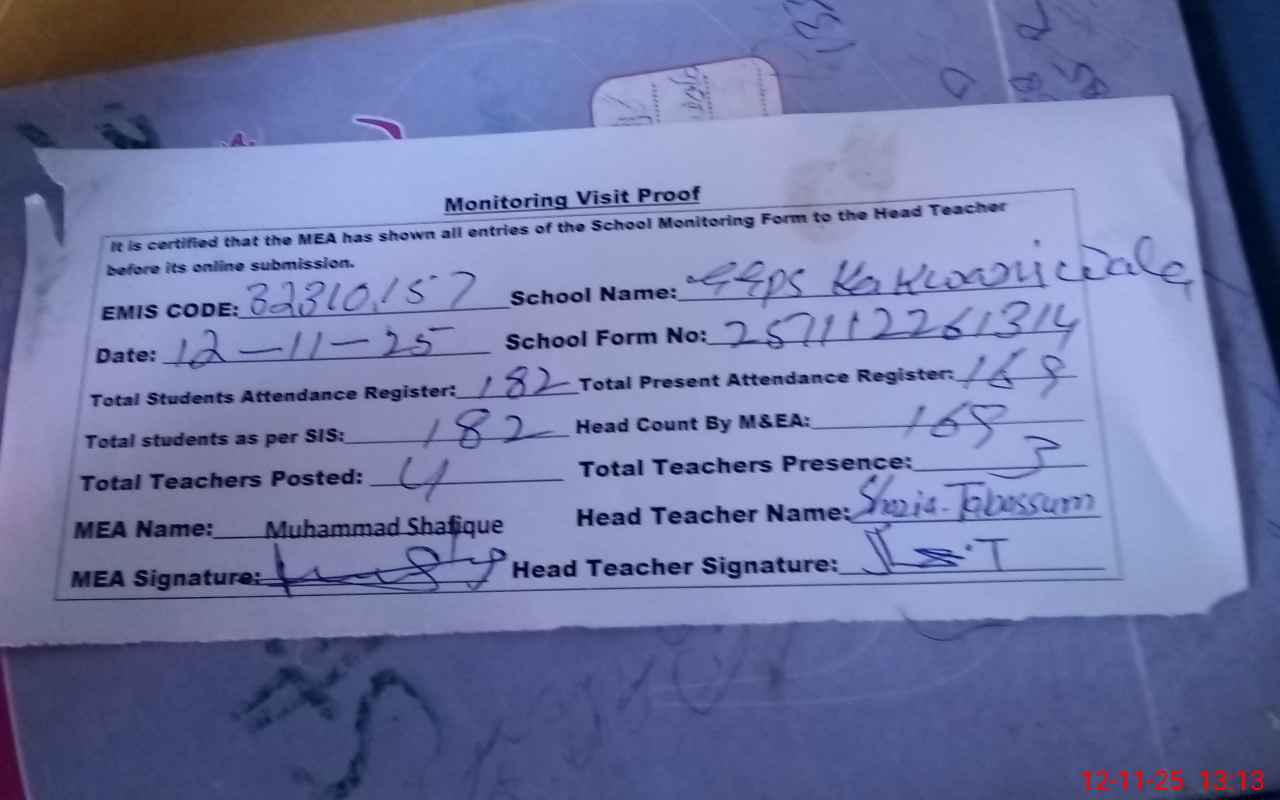 Monitoring Visit Proof
It is certified that the MEA has shown all entries of the School Monitoring Form to the Head Teacher
before its online submission.
EMIS CODE: 32310157 School Name: GGPS Kakwariwala
Date: 12-11-25 School Form No: 257112261314
Total Students Attendance Register: 182 Total Present Attendance Register: 168
Total students as per SIS: 182 Head Count By M&EA: 168
Total Teachers Posted: 4 Total Teachers Presence: 3
MEA Name: Muhammad Shafique Head Teacher Name: Shazia Tabassum
MEA Signature: Head Teacher Signature:
12-11-25 13:13